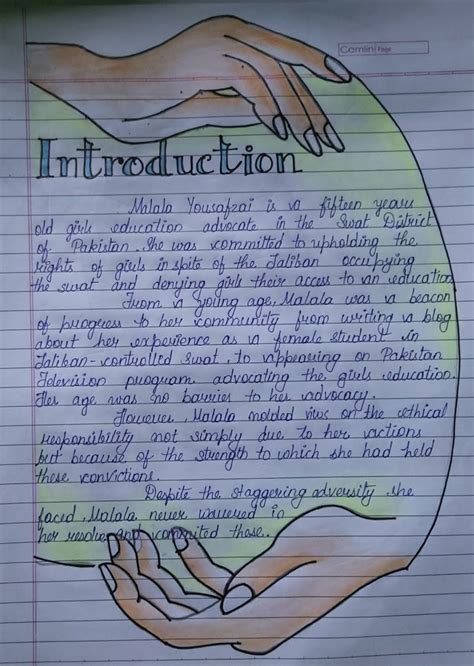 Camlin Page
Introduction
Malala Yousafzai is a fifteen years
old girls education advocate in the Swat District
of Pakistan. She was committed to upholding the
rights of girls in spite of the Taliban occupying
the swat and denying girls their access to an education
From a young age, Malala was a beacon
of progress to her community from writing a blog
about her experience as a female student in
Taliban-controlled Swat, to appearing on Pakistan
Television program advocating the girls education.
Her age was no barriers to her advocacy.
However, Malala molded views on the ethical
responsibility not simply due to her actions
but because of the strength to which she had held
these convictions.
Despite the staggering adversity she
faced, Malala never wavered in
her resolve and commited these.